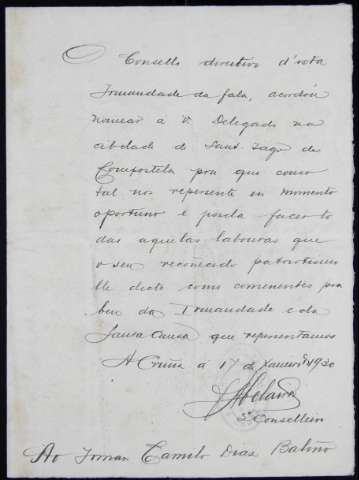 O Consello directivo d'ista
Irmandade da fala, acordou
nomear á V. Delegado na
cibdade de Sant-Iago de
Compostela pra que como
tal nos represente en momento
oportuno e poida facer to
das aquelas labouras que
o seu reconecido patriotismo
lle dicte como comenentes pra
ben da Irmandade e da
Santa Causa que representamos
A Cruña á 17 de Xaneiro 1930
1º Conselleiro
Ao Irman Camilo Diaz Baliño